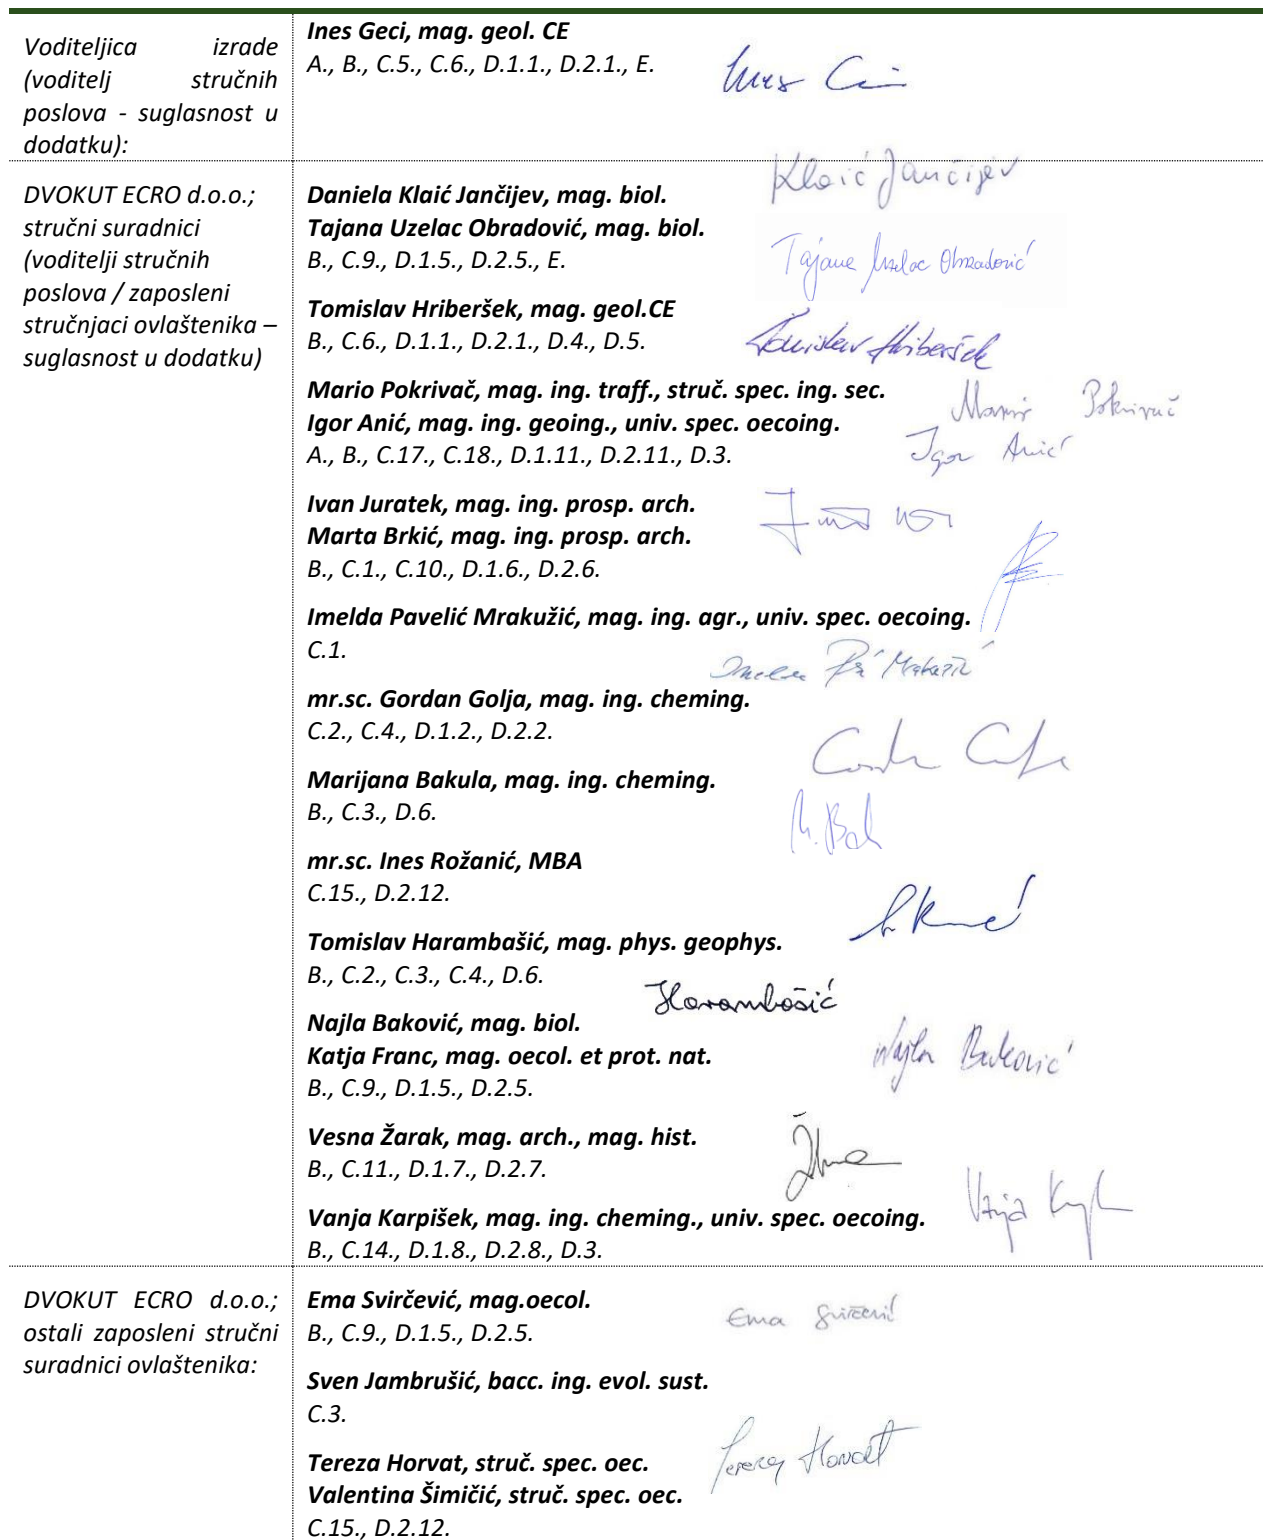 Voditeljica izrade
(voditelj stručnih
poslova - suglasnost u
dodatku):
Ines Geci, mag. geol. CE
A., B., C.5., C.6., D.1.1., D.2.1., E.
DVOKUT ECRO d.o.o.;
stručni suradnici
(voditelji stručnih
poslova / zaposleni
stručnjaci ovlaštenika –
suglasnost u dodatku)
Daniela Klaić Jančijev, mag. biol.
Klaić Jančijev
Tajana Uzelac Obradović, mag. biol.
B., C.9., D.1.5., D.2.5., E.
Tajana Uzelac Obradović
Tomislav Hriberšek, mag. geol.CE
B., C.6., D.1.1., D.2.1., D.4., D.5.
Tomislav Hriberšek
Mario Pokrivač, mag. ing. traff., struč. spec. ing. sec.
Mario Pokrivač
Igor Anić, mag. ing. geoing., univ. spec. oecoing.
Igor Anić
A., B., C.17., C.18., D.1.11., D.2.11., D.3.
Ivan Juratek, mag. ing. prosp. arch.
Marta Brkić, mag. ing. prosp. arch.
B., C.1., C.10., D.1.6., D.2.6.
Imelda Pavelić Mrakužić, mag. ing. agr., univ. spec. oecoing.
C.1.
mr.sc. Gordan Golja, mag. ing. cheming.
C.2., C.4., D.1.2., D.2.2.
Marijana Bakula, mag. ing. cheming.
B., C.3., D.6.
mr.sc. Ines Rožanić, MBA
C.15., D.2.12.
Tomislav Harambašić, mag. phys. geophys.
B., C.2., C.3., C.4., D.6.
Harambašić
Najla Baković, mag. biol.
Najla Baković
Katja Franc, mag. oecol. et prot. nat.
B., C.9., D.1.5., D.2.5.
Vesna Žarak, mag. arch., mag. hist.
B., C.11., D.1.7., D.2.7.
Vanja Karpišek, mag. ing. cheming., univ. spec. oecoing.
B., C.14., D.1.8., D.2.8., D.3.
DVOKUT ECRO d.o.o.;
ostali zaposleni stručni
suradnici ovlaštenika:
Ema Svirčević, mag.oecol.
B., C.9., D.1.5., D.2.5.
Ema Svirčević
Sven Jambrušić, bacc. ing. evol. sust.
C.3.
Tereza Horvat, struč. spec. oec.
Tereza Horvat
Valentina Šimičić, struč. spec. oec.
C.15., D.2.12.